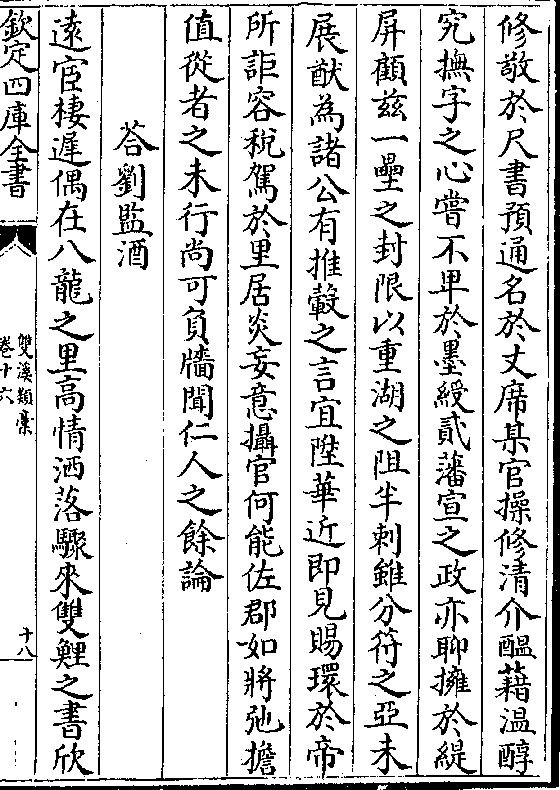 修敬於尺書預通名於丈席某官操修清介醖藉温醇
究撫字之心嘗不卑於墨綬貳藩宣之政亦聊擁於緹
屏顧兹一壘之封限以重湖之阻半刺雖分符之亞未
展猷為諸公有推轂之言宜陞華近即見賜環於帝
所詎容税駕於里居炎妄意攝官何能佐郡如將弛擔
值從者之未行尚可負牆聞仁人之餘論
荅劉監酒
逺宦棲遲偶在八龍之里高情洒落驟來雙鯉之書欣
欽定四庫全書
雙溪類槀
卷十六
十八